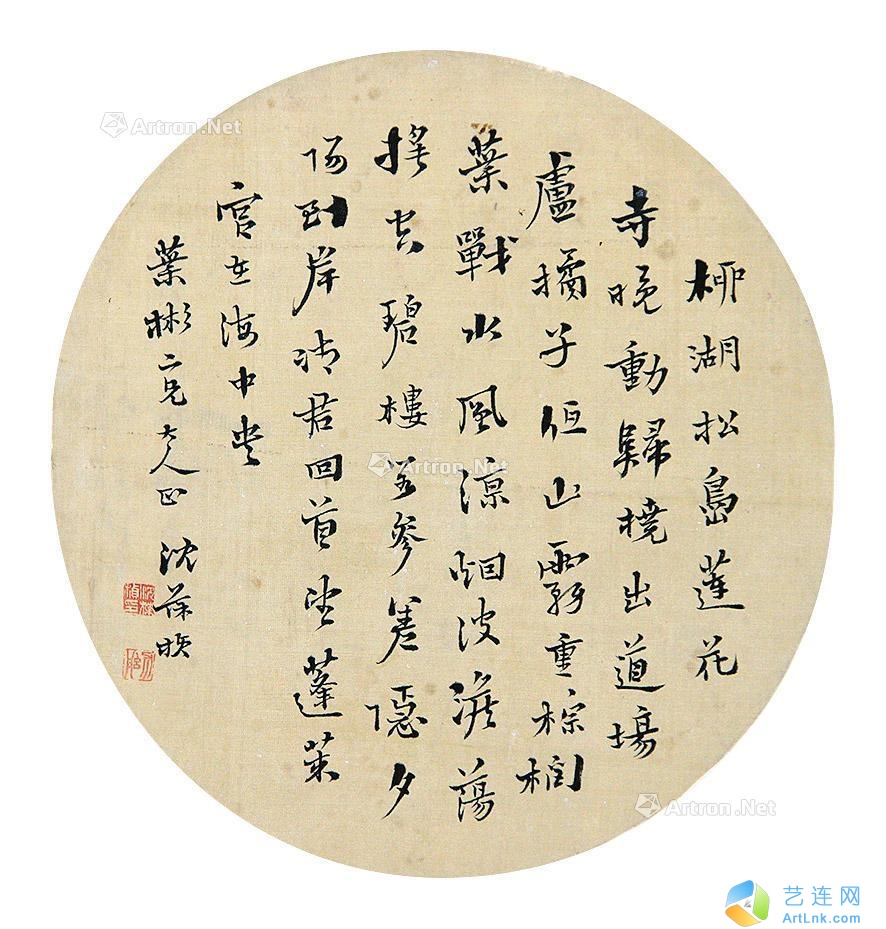 柳湖松島蓮花
寺晚動歸橈出道場
盧橘子低山霧重棕櫚
葉戰水風涼烟波澹蕩
搖空碧樓殿參差隱夕
陽到岸請君回首望蓬萊
宮在海中央
葉彬二兄大人正 沈葆楨
Artron.Net
Artron.Net
Artron.Net
艺连网
ArtLnk.com